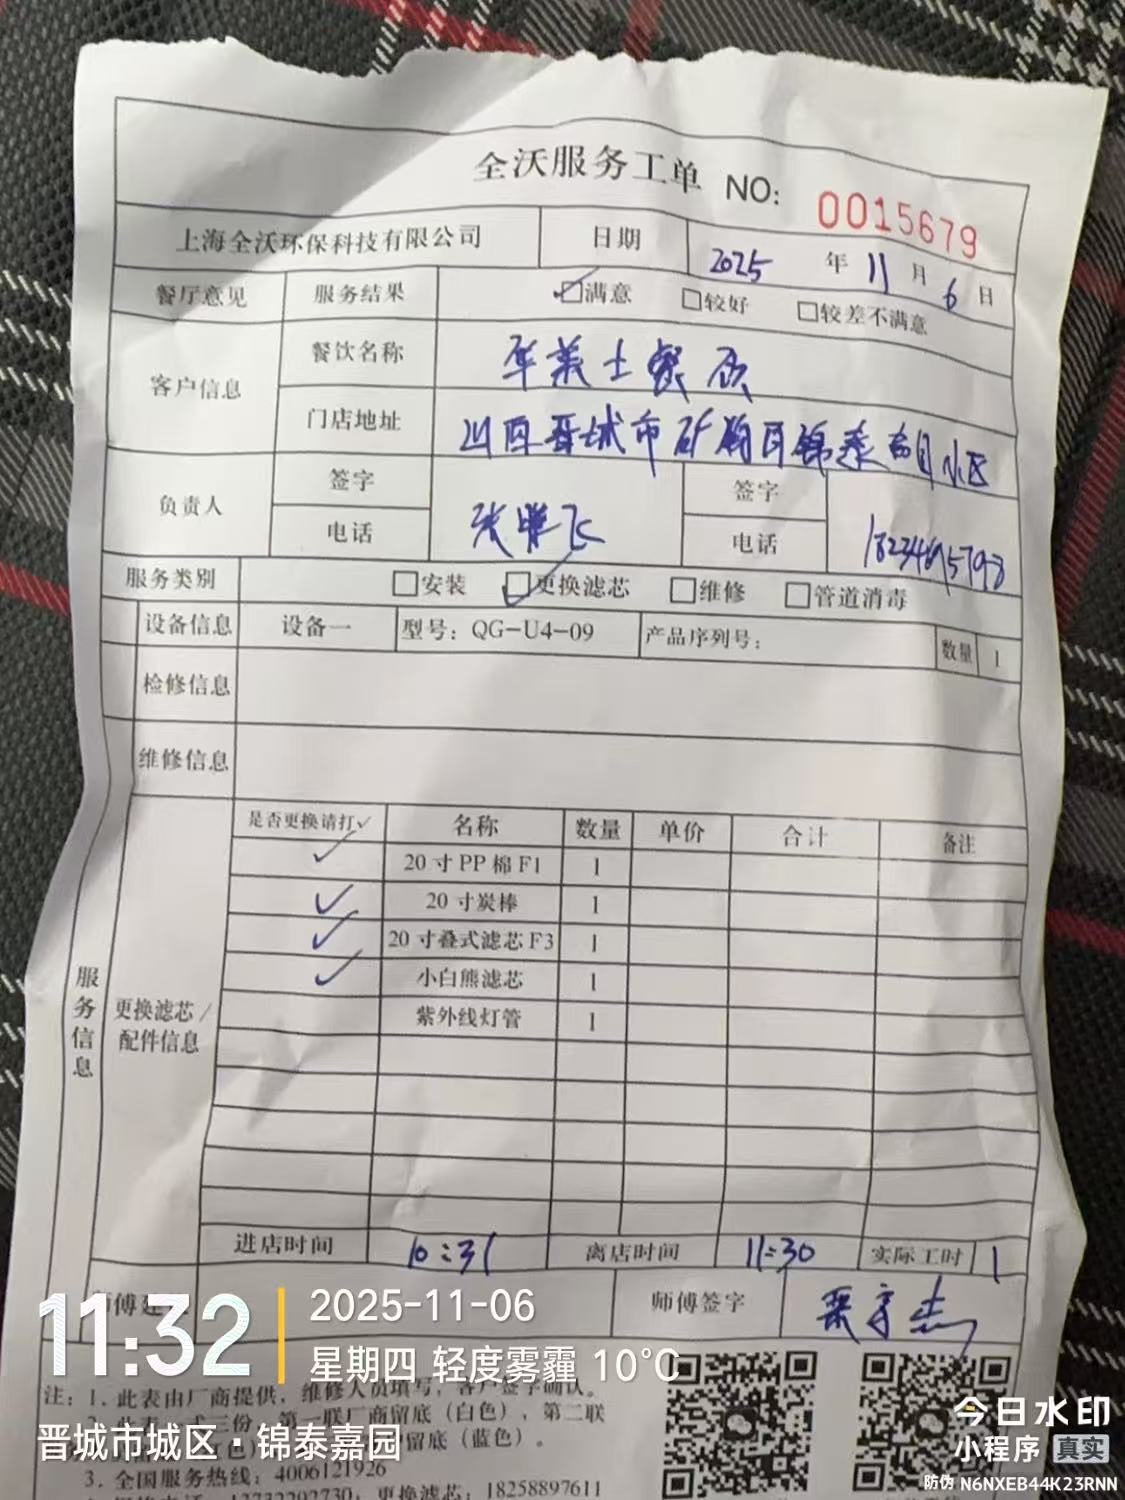 全沃服务工单 NO: 0015679
上海全沃环保科技有限公司 日期 2025 年 11 月 6 日
餐厅意见 服务结果 ☑满意 □较好 □较差不满意
客户信息 餐饮名称 华莱士餐饮
门店地址 山西晋城市矿 锦泰 小区
负责人 签字 飞 签字
电话 电话
服务类别 □安装 ☑更换滤芯 □维修 □管道消毒
设备信息 设备一 型号：QG-U4-09 产品序列号： 数量 1
检修信息
维修信息
服务信息
更换滤芯/配件信息
是否更换请打✓ 名称 数量 单价 合计 备注
✓ 20寸PP棉F1 1
✓ 20寸炭棒 1
✓ 20寸叠式滤芯F3 1
✓ 小白熊滤芯 1
紫外线灯管 1
进店时间 10:31 离店时间 11:30 实际工时 1
师傅签字
注：1. 此表由厂商提供，维修人员填写，客户签字确认。
第一联厂商留底（白色），第二联
留底（蓝色）。
3. 全国服务热线：4006121926
更换滤芯：18258897611
11:32
2025-11-06
星期四 轻度雾霾 10°C
晋城市城区·锦泰嘉园
今日水印
小程序 真实
防伪 N6NXEB44K23RNN